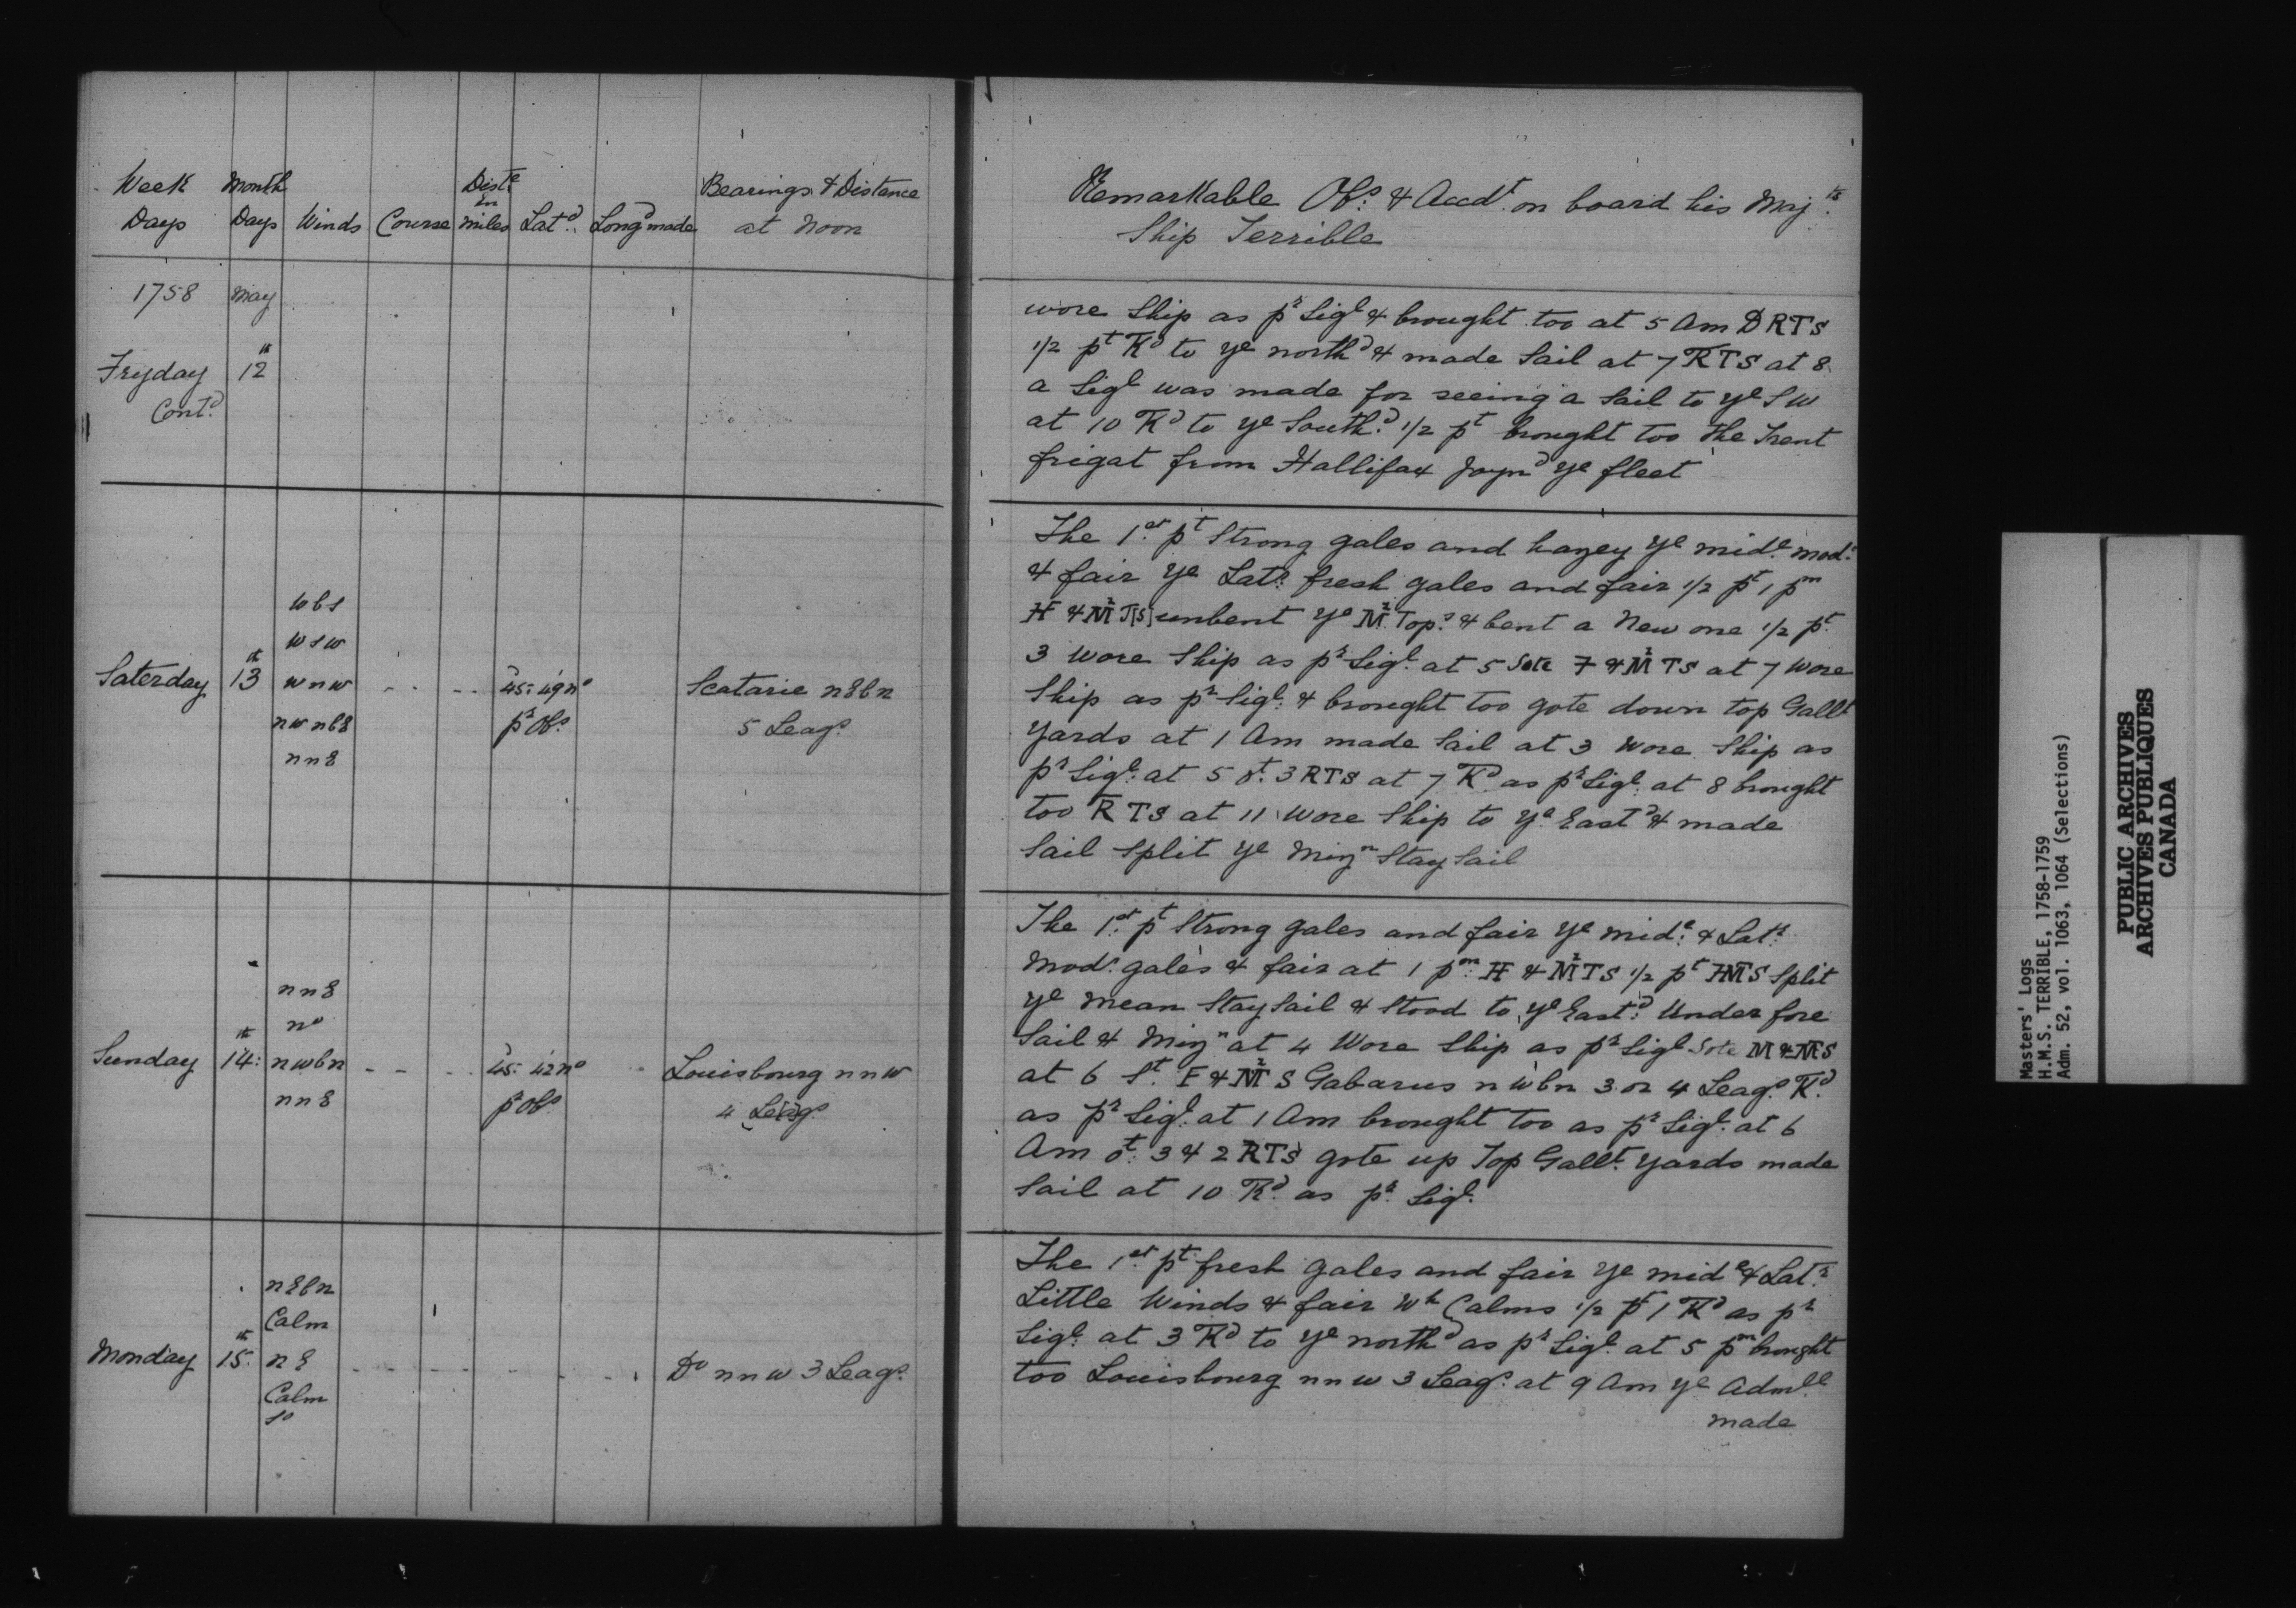 Week Month Dist.e Bearings & Distance
Days Days Winds Course in miles Lat.d Long.d made at Noon
1758 May
Fryday 12th
Cont.d
wbs
wsw
Saterday 13th wnw 45:49no Scatarie nEbn
nwnbE pr Obs. 5 Leags.
nnE
nnE
no
Sunday 14th: nwbn 45:42no Louisbourg nnw
nnE pr Obs 4 Leags
nEbn
Calm
Monday 15th nE Do nnw 3 Leags.
Calm
So
Remarkable Obs. & Accdt. on board his Majts.
Ship Terrible
wore Ship as pr Sigl & brought too at 5 Am D RTS
1/2 pt Tkd to ye northd & made Sail at 7 RTS at 8
a Sigl was made for seeing a Sail to ye SW
at 10 Tkd to ye Southd. 1/2 pt brought too the Trent
frigat from Hallifax Joynd ye fleet
The 1st pt Strong gales and hazey ye mide. mod.
& fair ye Latr. fresh gales and fair 1/2 pt 1 pm
H & Mz T[S] unbent ye Mz Tops. & bent a New one 1/2 pt.
3 wore Ship as pr Sigl. at 5 Sote F & Mz TS at 7 wore
Ship as pr Sigl. & brought too gote down top Gallt
yards at 1 Am made Sail at 3 wore Ship as
pr Sigl. at 5 ot. 3 RTS at 7 Tkd as pr Sigl. at 8 brought
too RTS at 11 wore Ship to ye Eastd & made
Sail Split ye Mizn Stay Sail
The 1st. pt Strong gales and fair ye mide. & Latr.
modt. gales & fair at 1 pm. H & Mz TS 1/2 pt HMTS Split
ye mean Stay Sail & Stood to ye Eastd. Under fore
Sail & Mizn at 4 Wore Ship as pr Sigl Sote M & MS
at 6 St. F & Mz S Gabarus nwbn 3 or 4 Leags. Tkd.
as pr Sigl. at 1 Am brought too as pr Sigl. at 6
Am ot. 3 & 2 RTS gote up Top Gallt. yards made
Sail at 10 Tkd. as pr. Sigl.
The 1st. pt. fresh gales and fair ye mide & Latr.
Little Winds & fair Wh Calms 1/2 pt 1 Tkd as pr
Sigl. at 3 Tkd to ye northd as pr Sigl. at 5 pm brought
too Louisbourg nnw 3 Leags. at 9 Am ye Admll.
made
Masters' Logs
H.M.S. TERRIBLE, 1758-1759
Adm. 52, vol. 1063, 1064 (Selections)
PUBLIC ARCHIVES
ARCHIVES PUBLIQUES
CANADA